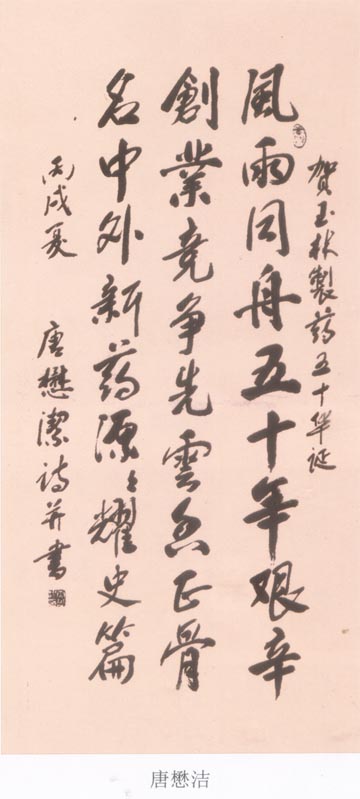 賀玉林製药五十华诞
風雨同舟五十年艰辛
創業竞争先雲香正骨
名中外新药源源耀史篇
丙戌夏
唐懋潔诗并書
唐懋洁